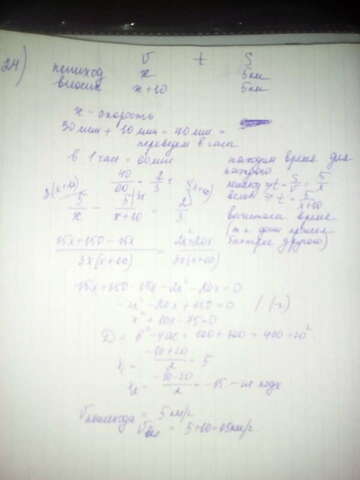 24) v t S
пешеход x 5км
велосип x+10 5км
x - скорость
30мин + 10мин = 40мин =
переведем в часа
в 1 часе = 60мин
40/60 = 2/3
находим время для
каждого
пешеход t = S/v = 5/x
велос. t = 5/x+10
вычитаем время
5/x - 5/x+10 = 2/3
15x+150-15x / 3x(x+10) = 2x²+20x / 3x(x+10)
15x+150-15x-2x²-20x=0
-x²-10x+75=0 /(-1)
x²+10x-75=0
D = b²-4ac = 100+300 = 400 = 20²
x₁ = -10+20/2 = 5
x₂ = -10-20/2 = -15 - не подх
Vпешехода = 5 км/ч
Vвел = 5+10=15км/ч